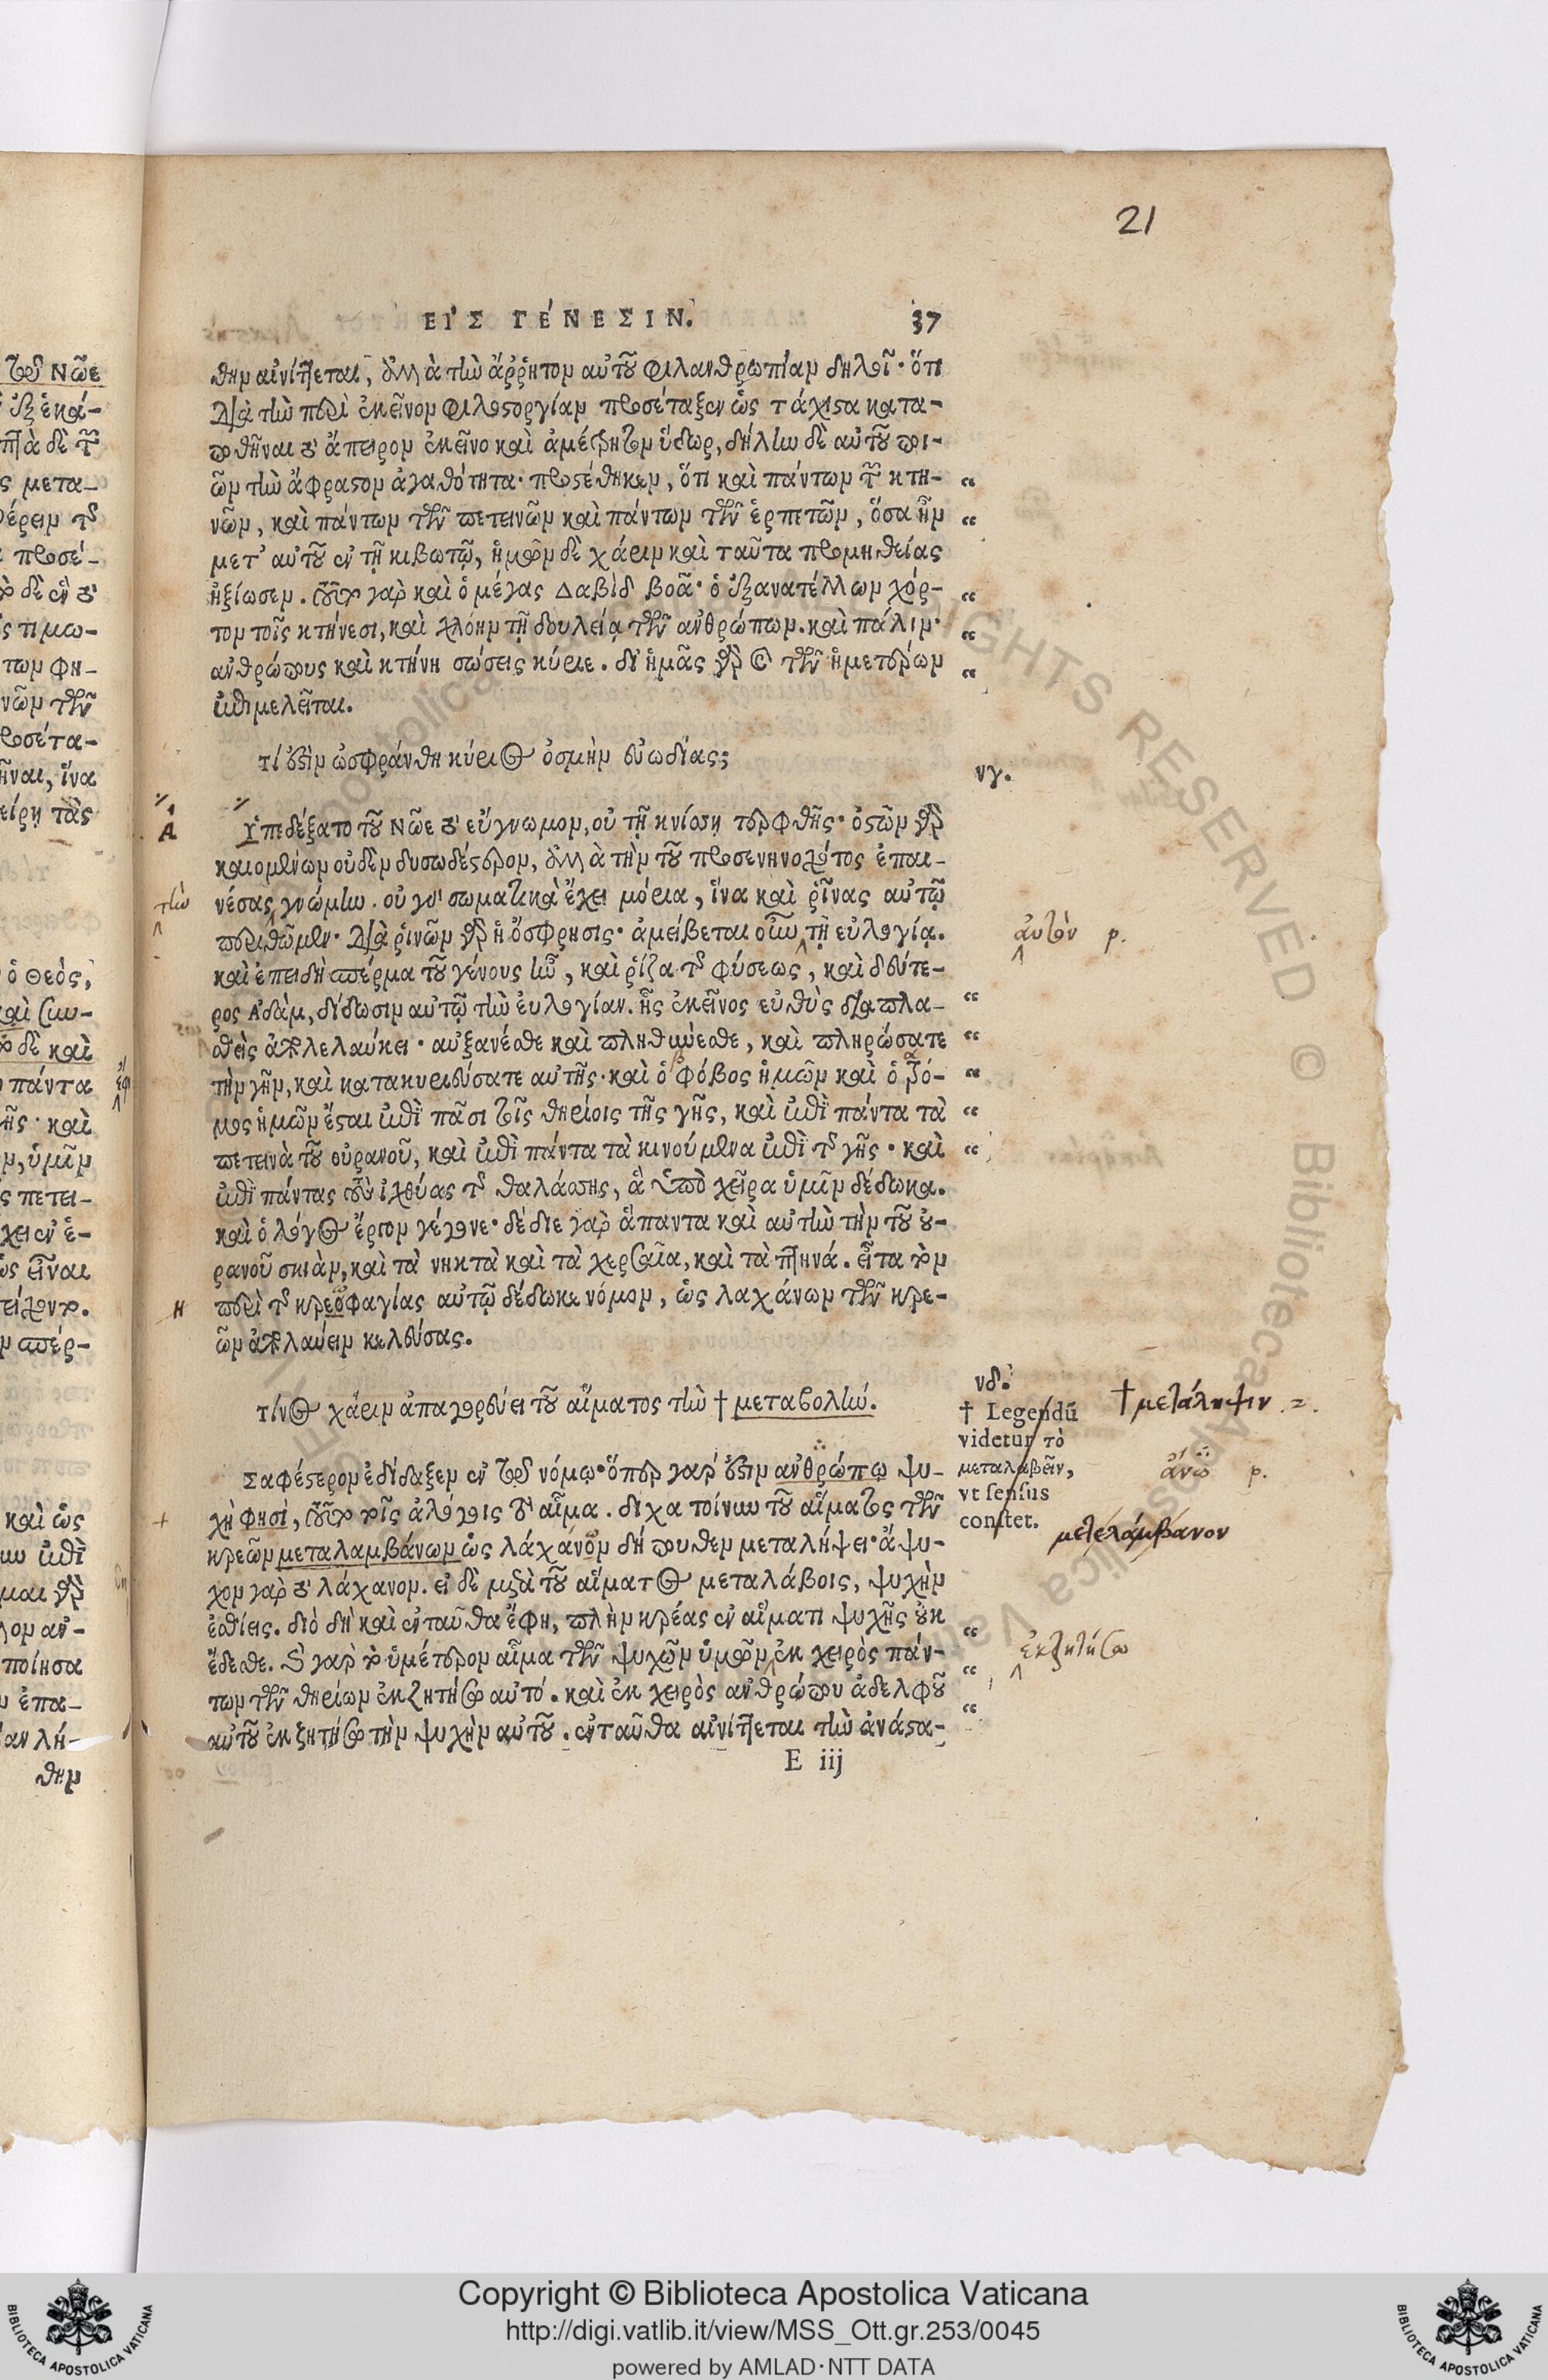 21
ΕΙ'Σ ΓΈΝΕΣΙΝ. 37
θην αἰνίττεται, ἀλλὰ τὴν ἄῤῥητον αὐτοῦ φιλανθρωπίαν δηλοῖ· ὅτι
διὰ τὴν περὶ ἐκεῖνον φιλοστοργίαν προσέταξεν ὡς τάχιστα κατα-
ποθῆναι τὸ ἄπειρον ἐκεῖνο καὶ ἀμέτρητον ὕδωρ, δήλην δὲ αὐτοῦ ποι-
ῶν τὴν ἄφραστον ἀγαθότητα· προστέθηκεν, ὅτι καὶ πάντων τῶν κτη- “
νῶν, καὶ πάντων τῶν πετεινῶν καὶ πάντων τῶν ἑρπετῶν, ὅσα ἦν “
μετ' αὐτοῦ ἐν τῇ κιβωτῷ, ἡμῶν δὲ χάριν καὶ ταῦτα προμηθείας
ἠξίωσεν. οὕτω γὰρ καὶ ὁ μέγας Δαβὶδ βοᾷ· ὁ ἐξανατέλλων χόρ- “
τον τοῖς κτήνεσι, καὶ χλόην τῇ δουλείᾳ τῶν ἀνθρώπων. καὶ πάλιν· “
ἀνθρώπους καὶ κτήνη σώσεις κύριε. δι' ἡμᾶς γὰρ καὶ τῶν ἡμετέρων “
ἐπιμελεῖται.
τί ἐστὶν ὠσφράνθη κύριος ὀσμὴν εὐωδίας;
νγ.
Α Ὑπεδέξατο τοῦ Νῶε τὸ εὔγνωμον, οὐ τῇ κνίσσῃ τερφθῆς· ὀστῶν γὰρ
καιομένων οὐδὲν δυσωδέστερον, ἀλλὰ τὴν τοῦ προσενηνοχότος ἐπαι-
τὴν νέσας γνώμην. οὐ γὰρ σωματικὰ ἔχει μόρια, ἵνα καὶ ῥῖνας αὐτῷ
περιθῶμεν· διὰ ῥινῶν γὰρ ἡ ὄσφρησις· ἀμείβεται οὖν τῇ εὐλογίᾳ. αὐτὸν p.
καὶ ἐπειδὴ σπέρμα τοῦ γένους ἦν, καὶ ῥίζα τῆς φύσεως, καὶ δεύτε-
ρος Ἀδὰμ, δίδωσιν αὐτῷ τὴν ἐυλογίαν. ἧς ἐκεῖνος εὐθὺς διαπλα- “
σθεὶς ἀπολελαύκει· αὐξανέσθε καὶ πληθύνεσθε, καὶ πληρώσατε “
τὴν γῆν, καὶ κατακυριεύσατε αὐτῆς· καὶ ὁ φόβος ἡμῶν καὶ ὁ τρό- “
μος ἡμῶν ἔσται ἐπὶ πᾶσι τοῖς θηρίοις τῆς γῆς, καὶ ἐπὶ πάντα τὰ “
πετεινὰ τοῦ οὐρανοῦ, καὶ ἐπὶ πάντα τὰ κινούμενα ἐπὶ τῆς γῆς· καὶ “
ἐπὶ πάντας τοὺς ἰχθύας τῆς θαλάσσης, ἃ ὑπὸ χεῖρα ὑμῖν δέδωκα.
καὶ ὁ λόγος ἔργον γέγονε· δέδιε γὰρ ἅπαντα καὶ αὐτὴν τὴν τοῦ οὐ-
ρανοῦ σκιὰν, καὶ τὰ νηκτὰ καὶ τὰ χερσαῖα, καὶ τὰ πτηνά. εἶτα τὸν
Η περὶ τῆς κρεοφαγίας αὐτῷ δέδωκε νόμον, ὡς λαχάνων τῶν κρε-
ῶν ἀπολαύειν κελεύσας.
νδ.
τίνος χάριν ἀπαγορεύει τοῦ αἵματος τὴν † μεταβολήν.
† Legendū
videtur τὸ
μεταλαβεῖν,
vt sensus
constet.
† μετάληψιν
Σαφέστερον ἐδίδαξεν ἐν τῷ νόμῳ· ὅπερ γάρ ἐστιν ἀνθρώπῳ ψυ- p.
χὴ φησὶ, οὕτω τοῖς ἀλόγοις τὸ αἷμα. δίχα τοίνυν τοῦ αἵματος τῶν
κρεῶν μεταλαμβάνων ὡς λάχανον δή πουθεν μεταλήψει· ἄψυ- μετελάμβανον
χον γὰρ τὸ λάχανον. εἰ δὲ μετὰ τοῦ αἵματος μεταλάβοις, ψυχὴν
ἐσθίεις. διὸ δὴ καὶ ἐνταῦθα ἔφη, πλὴν κρέας ἐν αἵματι ψυχῆς οὐκ “
ἔδεσθε. καὶ γὰρ τὸ ὑμέτερον αἷμα τῶν ψυχῶν ὑμῶν ἐκ χειρὸς πάν- “ ἐκζητήσω
των τῶν θηρίων ἐκζητήσω αὐτό. καὶ ἐκ χειρὸς ἀνθρώπου ἀδελφοῦ “
αὐτοῦ ἐκζητήσω τὴν ψυχὴν αὐτοῦ. ἐνταῦθα αἰνίττεται τὴν ἀνάστα-
E iij
Copyright © Biblioteca Apostolica Vaticana
http://digi.vatlib.it/view/MSS_Ott.gr.253/0045
powered by AMLAD·NTT DATA